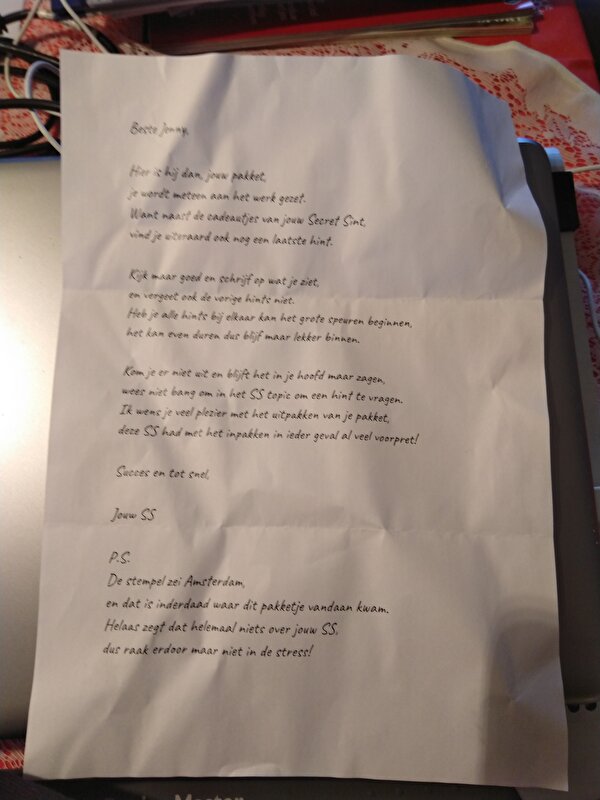 Beste Jenny,
Hier is hij dan, jouw pakket,
je wordt meteen aan het werk gezet.
Want naast de cadeautjes van jouw Secret Sint,
vind je uiteraard ook nog een laatste hint.
Kijk maar goed en schrijf op wat je ziet,
en vergeet ook de vorige hints niet.
Heb je alle hints bij elkaar kan het grote speuren beginnen,
het kan even duren dus blijf maar lekker binnen.
Kom je er niet uit en blijft het in je hoofd maar zagen,
wees niet bang om in het SS topic om een hint te vragen.
Ik wens je veel plezier met het uitpakken van je pakket,
deze SS had met het inpakken in ieder geval al veel voorpret!
Succes en tot snel,
Jouw SS
P.S.
De stempel zei Amsterdam,
en dat is inderdaad waar dit pakketje vandaan kwam.
Helaas zegt dat helemaal niets over jouw SS,
dus raak erdoor maar niet in de stress!